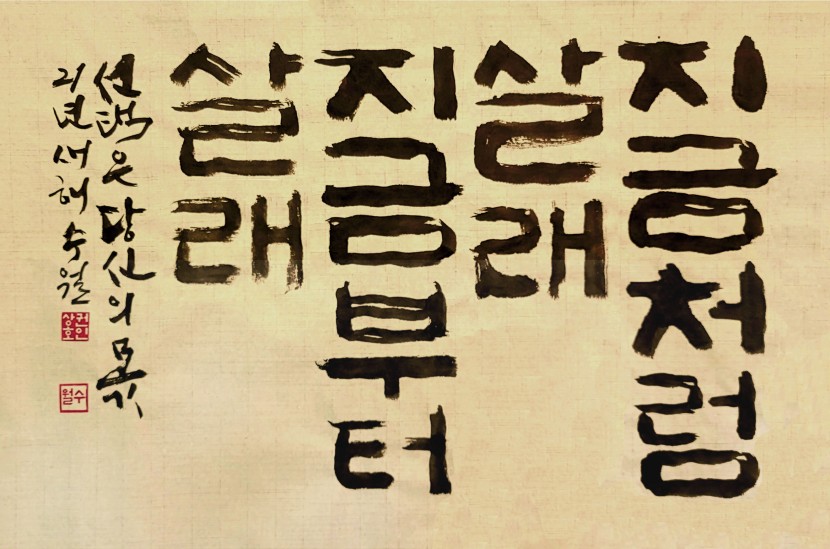 지금처럼
살래
지금부터
살래
선택은 당신의 몫
21년 새해 수월
권상호인
수월